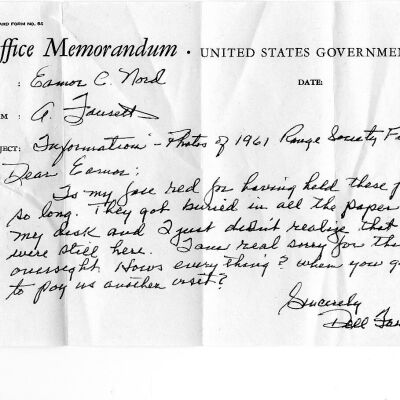 AND FORM NO. 64
ffice Memorandum • UNITED STATES GOVERNME
: Eamor C. Nord DATE:
M : A. Fausett
JECT: Information - Photos of 1961 Range Society F
Dear Eamor:
Is my face red for having held these p
so long. They got buried in all the paper
my desk and I just didn't realize that
were still here. I am real sorry for th
oversight. Hows everything? when you g
to pay us another visit?
Sincerely
Dell Fau